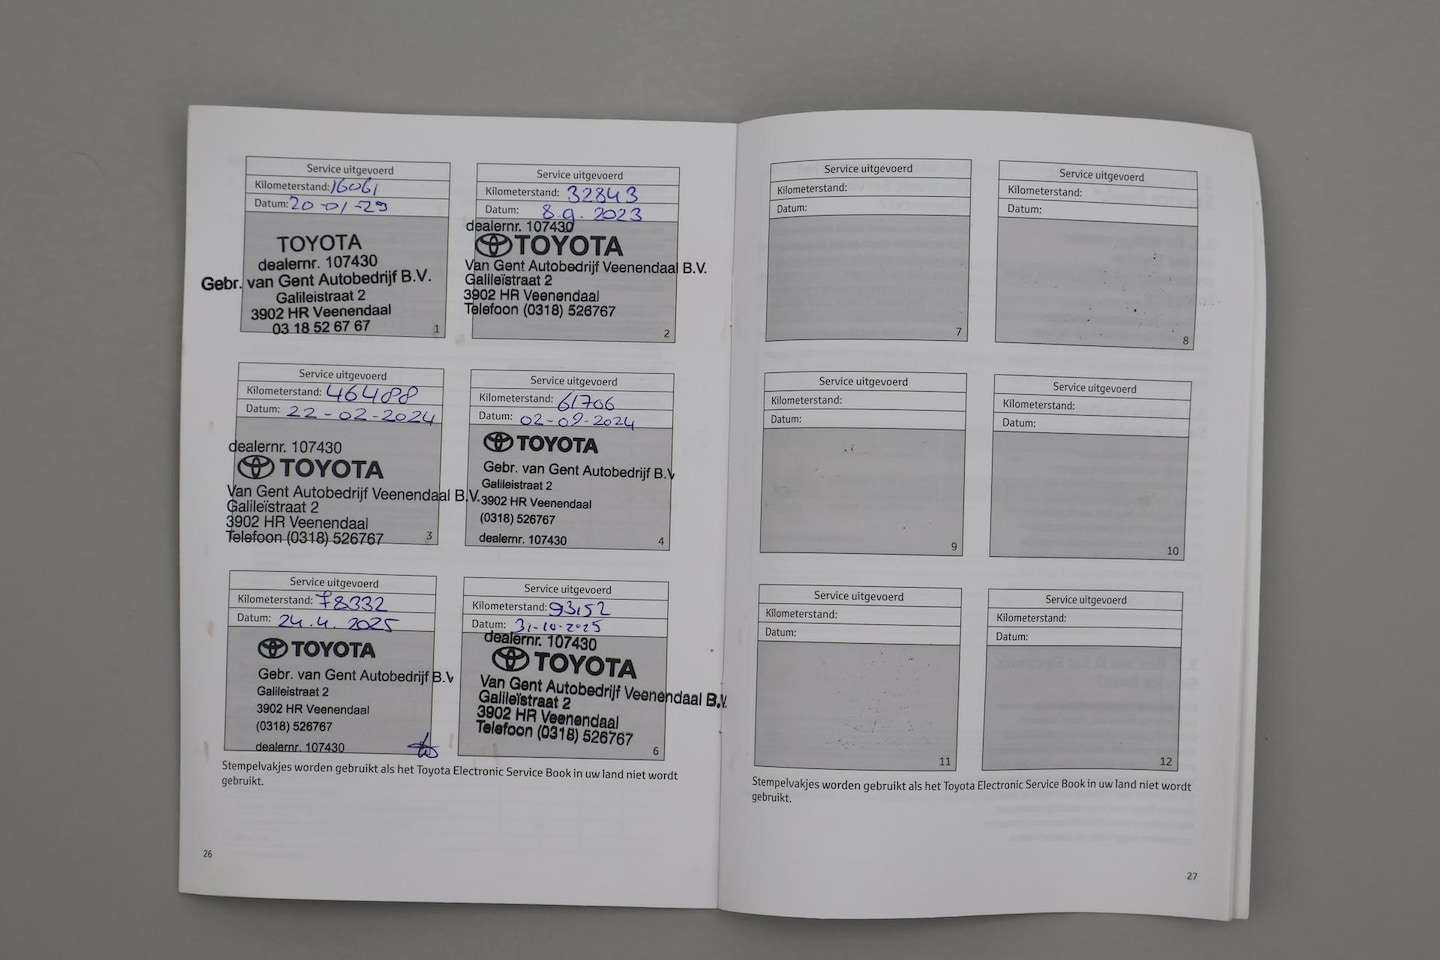 Service uitgevoerd
Kilometerstand: 16061
Datum: 20-01-23
TOYOTA
dealernr. 107430
Gebr. van Gent Autobedrijf B.V.
Galileistraat 2
3902 HR Veenendaal
03 18 52 67 67
1
Service uitgevoerd
Kilometerstand: 32843
Datum: 8.9.2023
dealernr. 107430
TOYOTA
Van Gent Autobedrijf Veenendaal B.V.
Galileïstraat 2
3902 HR Veenendaal
Telefoon (0318) 526767
2
Service uitgevoerd
Kilometerstand: 46488
Datum: 22-02-2024
dealernr. 107430
TOYOTA
Van Gent Autobedrijf Veenendaal B.V.
Galileïstraat 2
3902 HR Veenendaal
Telefoon (0318) 526767
3
Service uitgevoerd
Kilometerstand: 61706
Datum: 02-09-2024
TOYOTA
Gebr. van Gent Autobedrijf B.V
Galileistraat 2
3902 HR Veenendaal
(0318) 526767
dealernr. 107430
4
Service uitgevoerd
Kilometerstand: 78332
Datum: 24.4.2025
TOYOTA
Gebr. van Gent Autobedrijf B.V
Galileistraat 2
3902 HR Veenendaal
(0318) 526767
dealernr. 107430
Service uitgevoerd
Kilometerstand: 93152
Datum: 31-10-2025
dealernr. 107430
TOYOTA
Van Gent Autobedrijf Veenendaal B.V.
Galileïstraat 2
3902 HR Veenendaal
Telefoon (0318) 526767
6
Stempelvakjes worden gebruikt als het Toyota Electronic Service Book in uw land niet wordt
gebruikt.
26
Service uitgevoerd
Kilometerstand:
Datum:
7
Service uitgevoerd
Kilometerstand:
Datum:
8
Service uitgevoerd
Kilometerstand:
Datum:
9
Service uitgevoerd
Kilometerstand:
Datum:
10
Service uitgevoerd
Kilometerstand:
Datum:
11
Service uitgevoerd
Kilometerstand:
Datum:
12
Stempelvakjes worden gebruikt als het Toyota Electronic Service Book in uw land niet wordt
gebruikt.
27